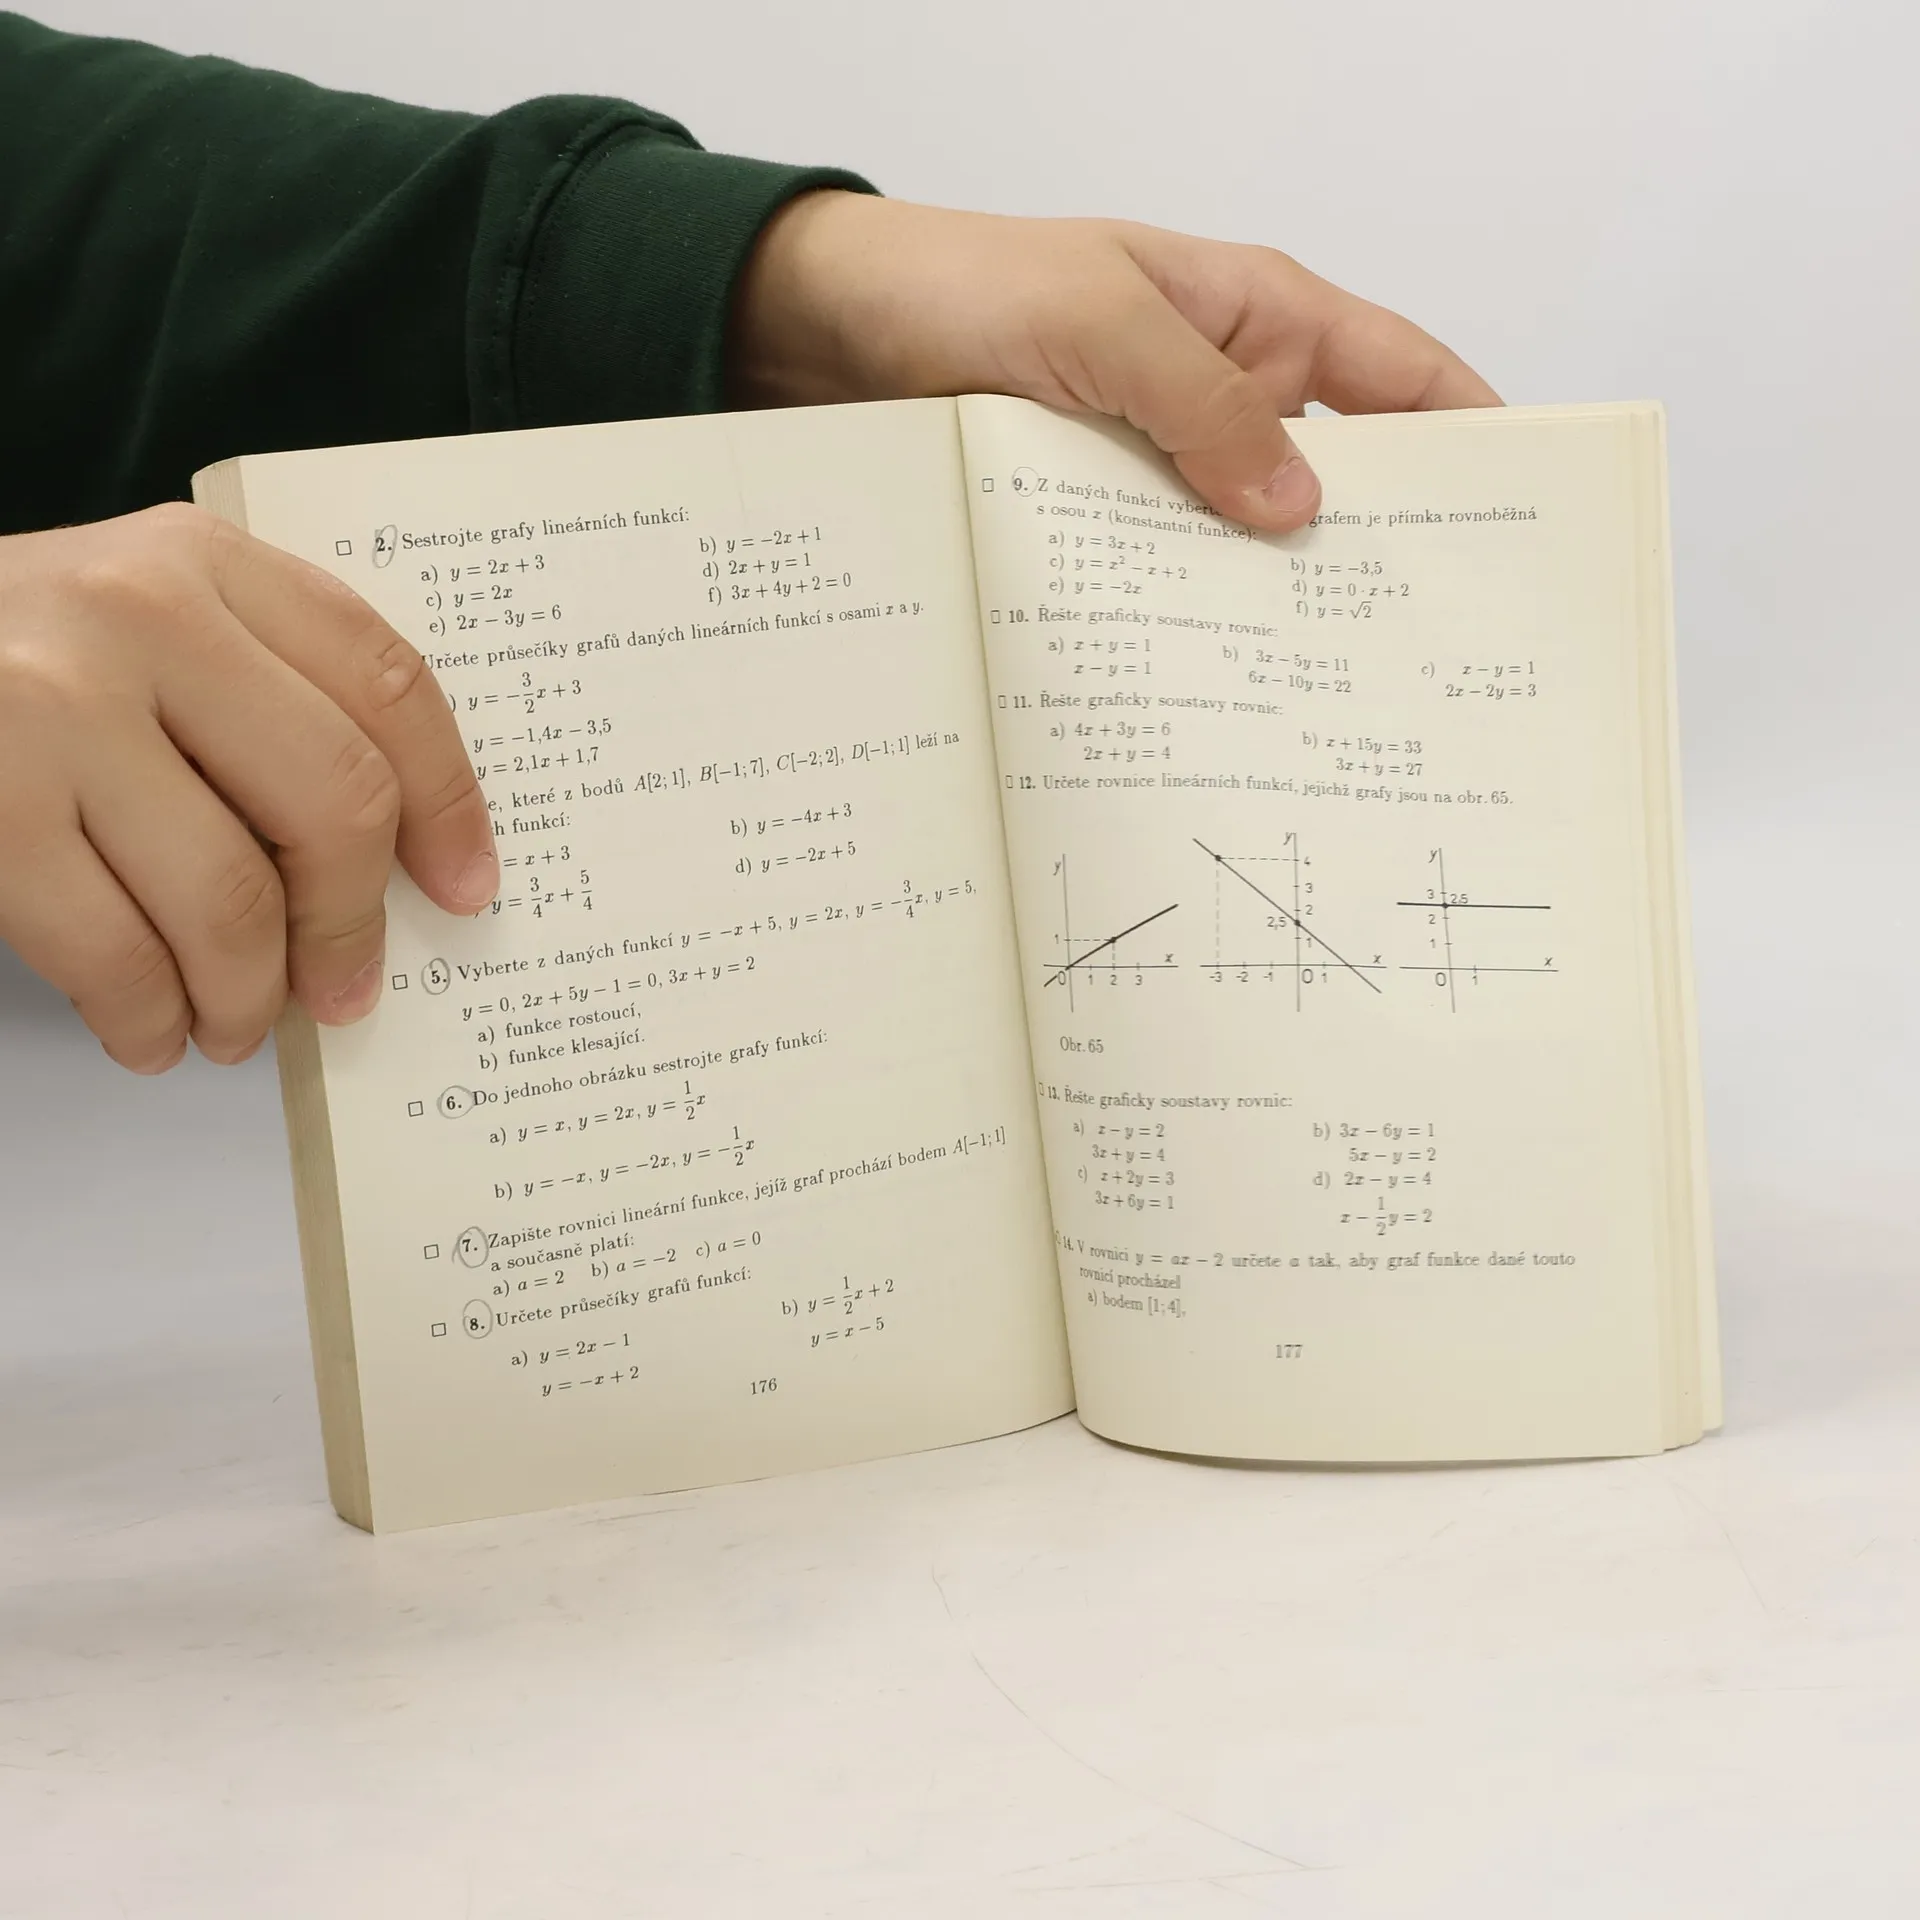 2. Sestrojte grafy lineárních funkcí:
a) y = 2x + 3 b) y = −2x + 1
c) y = 2x d) 2x + y = 1
e) 2x − 3y = 6 f) 3x + 4y + 2 = 0
Určete průsečíky grafů daných lineárních funkcí s osami x a y.
) y = −3/2x + 3
y = −1,4x − 3,5
y = 2,1x + 1,7
které z bodů A[2; 1], B[−1; 7], C[−2; 2], D[−1; 1] leží na
funkcí:
= x + 3 b) y = −4x + 3
y = 3/4x + 5/4 d) y = −2x + 5
5. Vyberte z daných funkcí y = −x + 5, y = 2x, y = −3/4x, y = 5,
y = 0, 2x + 5y − 1 = 0, 3x + y = 2
a) funkce rostoucí,
b) funkce klesající.
6. Do jednoho obrázku sestrojte grafy funkcí:
a) y = x, y = 2x, y = 1/2x
b) y = −x, y = −2x, y = −1/2x
7. Zapište rovnici lineární funkce, jejíž graf prochází bodem A[−1; 1]
a současně platí:
a) a = 2 b) a = −2 c) a = 0
8. Určete průsečíky grafů funkcí:
a) y = 2x − 1 b) y = 1/2x + 2
y = −x + 2 y = x − 5
176
9. Z daných funkcí grafem je přímka rovnoběžná
s osou x (konstantní funkce):
a) y = 3x + 2 b) y = −3,5
c) y = x² − x + 2 d) y = 0 · x + 2
e) y = −2x f) y = √2
10. Řešte graficky soustavy rovnic:
a) x + y = 1 b) 3x − 5y = 11 c) x − y = 1
x − y = 1 6x − 10y = 22 2x − 2y = 3
11. Řešte graficky soustavy rovnic:
a) 4x + 3y = 6 b) x + 15y = 33
2x + y = 4 3x + y = 27
12. Určete rovnice lineárních funkcí, jejichž grafy jsou na obr. 65.
y 1 x 0 1 2 3
y 4 3 2 2,5 1 x -3 -2 -1 0 1
y 3 2,5 2 1 x 0 1
Obr. 65
13. Řešte graficky soustavy rovnic:
a) x − y = 2 b) 3x − 6y = 1
3x + y = 4 5x − y = 2
c) x + 2y = 3 d) 2x − y = 4
3x + 6y = 1 x − 1/2y = 2
14. V rovnici y = ax − 2 určete a tak, aby graf funkce dané touto
rovnicí procházel
a) bodem [1; 4],
177